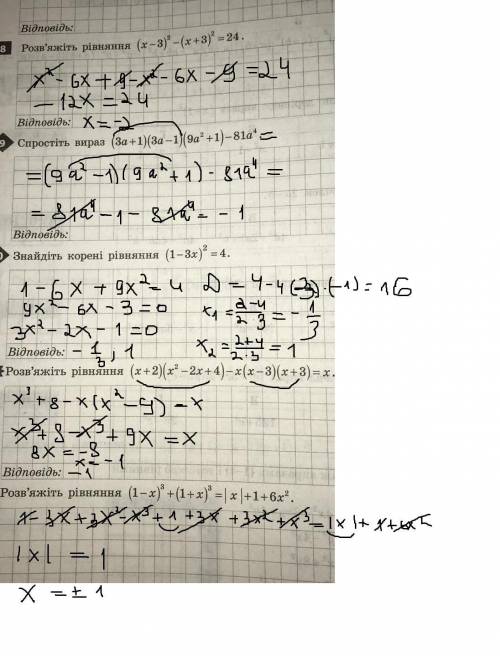 Відповідь:
8 Розв'яжіть рівняння (x−3)²−(x+3)²=24.
x² - 6x + 9 - x² - 6x - 9 = 24
- 12x = 24
Відповідь: x = -2
9 Спростіть вираз (3a+1)(3a−1)(9a²+1)−81a⁴ =
= (9a² - 1)(9a² + 1) - 81a⁴ =
= 81a⁴ - 1 - 81a⁴ = - 1
Відповідь:
Знайдіть корені рівняння (1−3x)²=4.
1 - 6x + 9x² = 4 D = 4 - 4·(3)·(-1) = 16
9x² - 6x - 3 = 0 x₁ = 2-4/2·3 = - 1/3
3x² - 2x - 1 = 0
Відповідь: - 1/3, 1 x₂ = 2+4/2·3 = 1
Розв'яжіть рівняння (x+2)(x²−2x+4)−x(x−3)(x+3)=x.
x³ + 8 - x(x² - 9) = x
x³ + 8 - x³ + 9x = x
8x = -8
x = -1
Відповідь: -1
Розв'яжіть рівняння (1−x)³+(1+x)³=|x|+1+6x².
1 - 3x + 3x² - x³ + 1 + 3x + 3x² + x³ = |x| + 1 + 6x²
|x| = 1
x = ± 1